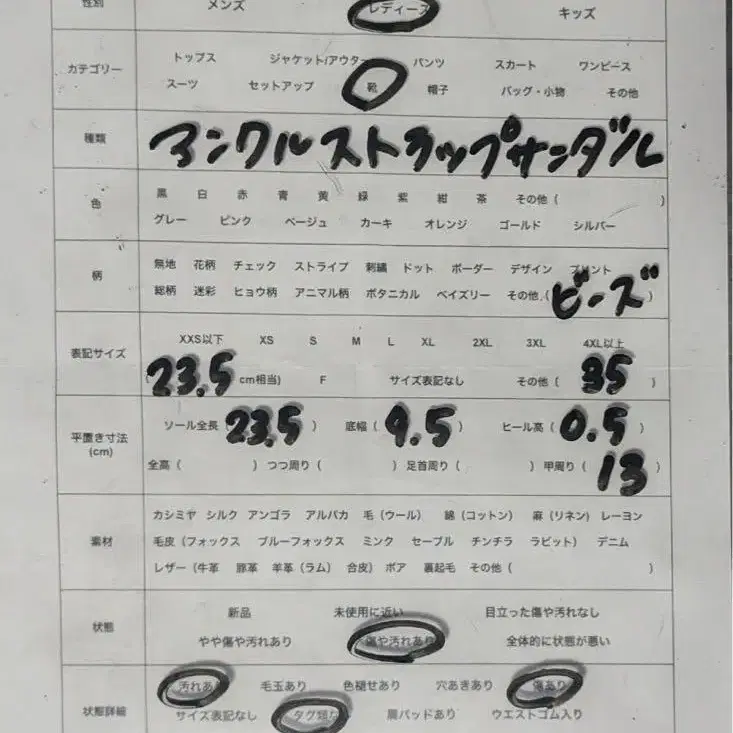 性別 メンズ レディース キッズ
カテゴリー トップス ジャケット/アウター パンツ スカート ワンピース
スーツ セットアップ 靴 帽子 バッグ・小物 その他
種類 アンクルストラップサンダル
色 黒 白 赤 青 黄 緑 紫 紺 茶 その他 ( )
グレー ピンク ベージュ カーキ オレンジ ゴールド シルバー
柄 無地 花柄 チェック ストライプ 刺繍 ドット ボーダー デザイン プリント
総柄 迷彩 ヒョウ柄 アニマル柄 ボタニカル ペイズリー その他 (ビーズ)
表記サイズ XXS以下 XS S M L XL 2XL 3XL 4XL以上
(23.5 cm相当) F サイズ表記なし その他 (35)
平置き寸法 (cm) ソール全長 (23.5) 底幅 (9.5) ヒール高 (0.5)
全高 ( ) つつ周り ( ) 足首周り ( ) 甲周り (13)
素材 カシミヤ シルク アンゴラ アルパカ 毛 (ウール) 綿 (コットン) 麻 (リネン) レーヨン
毛皮 (フォックス ブルーフォックス ミンク セーブル チンチラ ラビット) デニム
レザー (牛革 豚革 羊革 (ラム) 合皮) ボア 裏起毛 その他 ( )
状態 新品 未使用に近い 目立った傷や汚れなし
やや傷や汚れあり 傷や汚れあり 全体的に状態が悪い
状態詳細 汚れあり 毛玉あり 色褪せあり 穴あきあり 傷あり
サイズ表記なし タグ類なし 肩パッドあり ウエストゴム入り